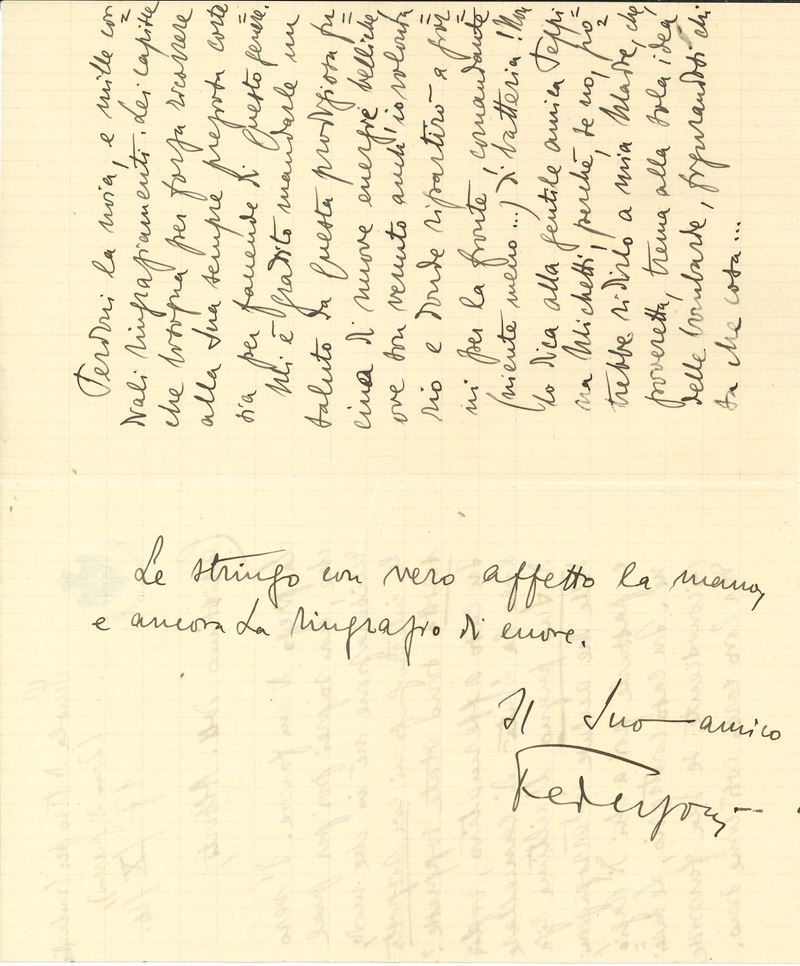 Perdoni la noia, e mille cor=
diali ringraziamenti. Lei capisce
che bisogna per forza ricorrere
alla Sua sempre preposta corte=
sia per faccende di questo genere.
Mi è gradito mandarle un
saluto da questa prodigiosa fu=
cina di nuove energie belliche,
ove son venuto anch'io volonta=
rio e donde ripartirò a gior=
ni per la fronte, comandante
(niente meno...) di batteria! Non
lo dica alla gentile amica Peppi=
na Michetti, perché, se no, po=
trebbe ridirlo a mia Madre, che,
poveretta, trema alla sola idea
delle bombarde, figurandosi chi
sa che cosa...
Le stringo con vero affetto la mano,
e ancora La ringrazio di cuore.
Il Suo amico
Federzoni